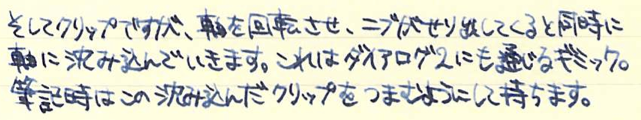 そしてクリップですが、軸を回転させ、ニブがせり出してくると同時に
軸に沈み込んでいきます。これはダイアログ2にも通じるギミック。
筆記時はこの沈み込んだクリップをつまむようにして持ちます。